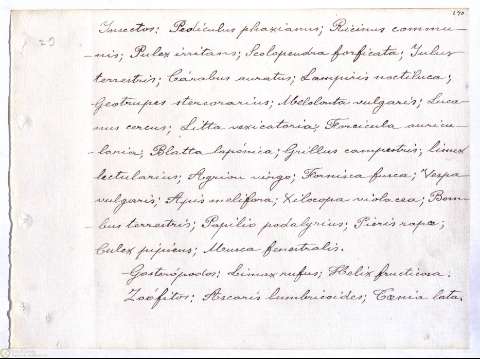 170
Insectos: Pediculus phaxianus; Ricinus commu-
-nis; Pulex irritans; Scolopendra forficata; Julus
terrestris; Cárabus auratus; Lampiris noctiluca;
Geotrupes stercorarius; Melolonta vulgaris; Luca-
nus cercus; Litta vexicatoria; Forcicula auricu-
-laria; Blatta lapónica; Grillus campestris; limex
lectularius; Agrion virgo; Formica fusca; Vespa
vulgaris; Apis melífera; Xilocopa violacea; Bom-
-bus terrestris; Papilio podalyrius; Pieris rapæ;
Culex pipicus; Meusca fenestralis.
-Gastrópodos: Limax rufus; Helix fructicosa:
Zoófitos: Ascaris lumbricoides; Cænia lata.